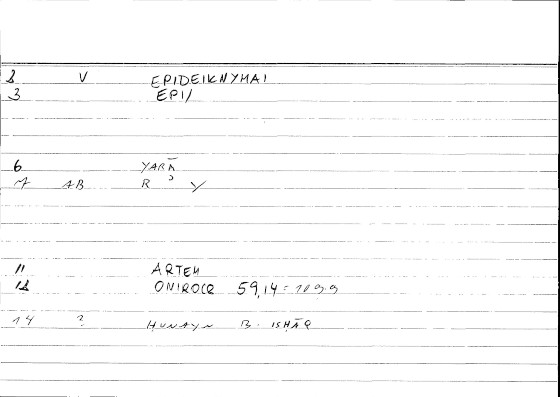 2 V EPIDEIKNYMAI
3 EPI/
6 YARĀ
AB R Ɂ Y
11 ARTEM
12 ONIROCR 59,14 = 10 9,9
14 ? HUNAYN B. ISHĀQ